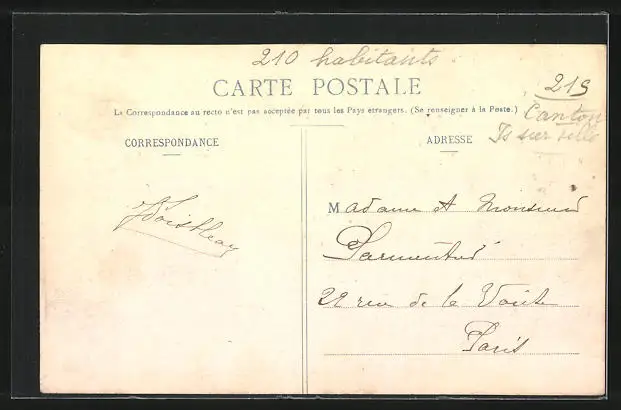 210 habitants
CARTE POSTALE
219
La Correspondance au recto n'est pas acceptée par tous les Pays étrangers. (Se renseigner à la Poste.)
Canton
Is sur tille
CORRESPONDANCE
ADRESSE
Madame et Monsieur
22 rue de la Voûte
Paris